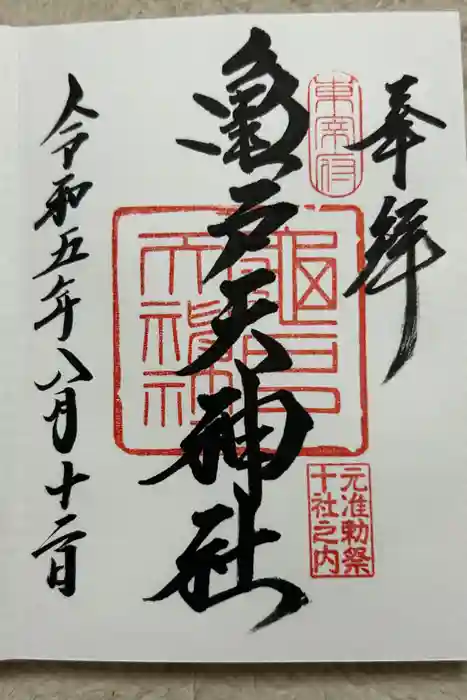 奉拝
東宰府
亀戸天神社
元准勅祭
十社之内
令和五年八月十二日